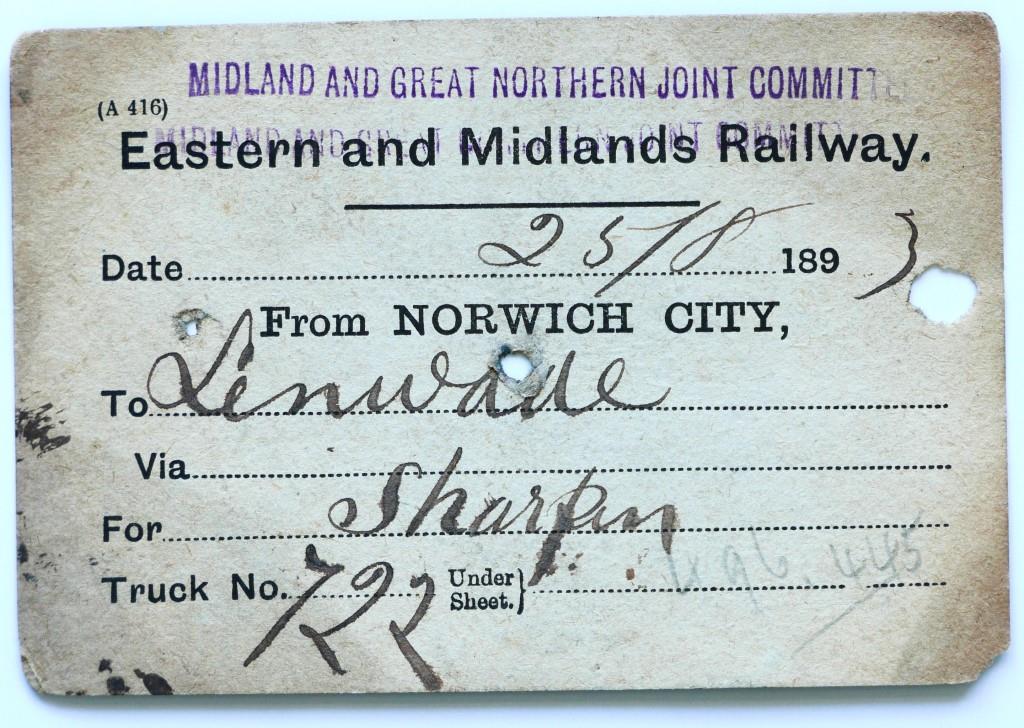 MIDLAND AND GREAT NORTHERN JOINT COMMITTE
(A 416)
MIDLAND AND GREAT NORTHERN JOINT COMMITT
Eastern and Midlands Railway.
Date 25/8 1893
From NORWICH CITY,
To Lenwade
Via
For Sharpin
Truck No. 722 Under Sheet.}